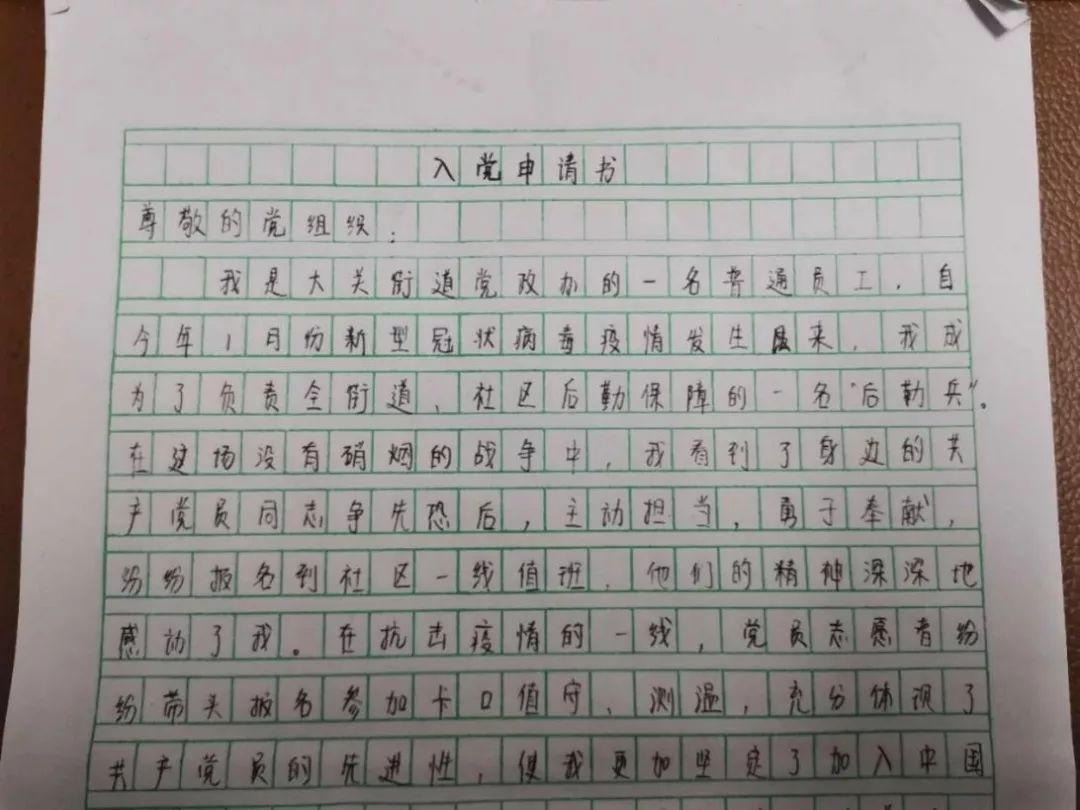 入党申请书
尊敬的党组织：
我是大关街道党政办的一名普通员工，自
今年1月份新型冠状病毒疫情发生以来，我成
为了负责全街道、社区后勤保障的一名“后勤兵”。
在这场没有硝烟的战争中，我看到了身边的共
产党员同志争先恐后，主动担当，勇于奉献，
纷纷报名到社区一线值班，他们的精神深深地
感动了我。在抗击疫情的一线，党员志愿者纷
纷带头报名参加卡口值守、测温，充分体现了
共产党员的先进性，使我更加坚定了加入中国